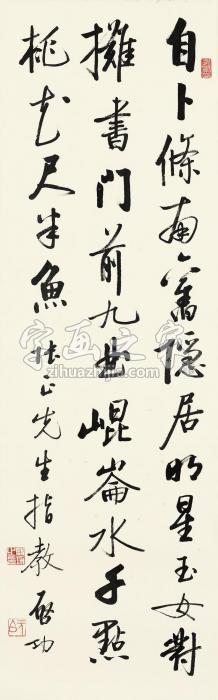 自卜條南舊隱居明星玉女對
攤書門前九曲崐崙水千點
桃花尺半魚 正先生指教 啟功
字画之家
zihuazhijia.com